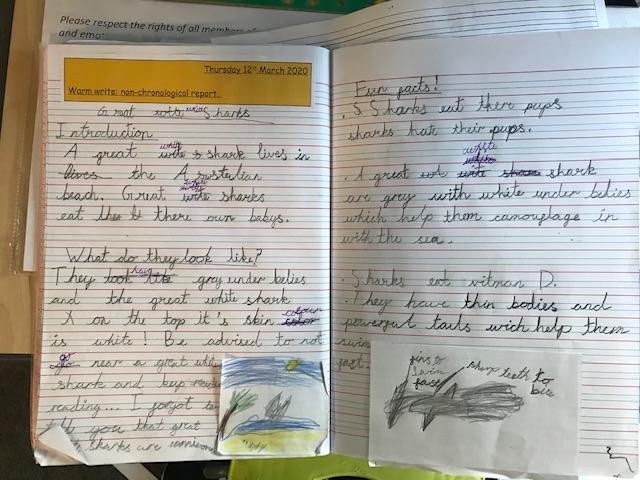 Please respect the rights of all members of
and emo
Thursday 12th March 2020
Warm write: non-chronological report.
Great white Sharks
Introduction
A great white shark lives in
the Australian
beach. Great white sharks
eat there own babys.
What do they look like?
They have grey under belies
and the great white shark
on the top it's skin colour
is white! Be advised to not
go near a great white
shark and keep
reading... I forgot to
tell you that great
sharks are
Fun facts!
. Sharks eat there pups
sharks hate their pups.
. A great white shark
are grey with white under belies
which help them camouflage in
with the sea.
. Sharks eat vitman D.
. They have thin bodies and
powerful tails wich help them
swim
fast.
fins to
swim
fast
sharp teeth to
bite